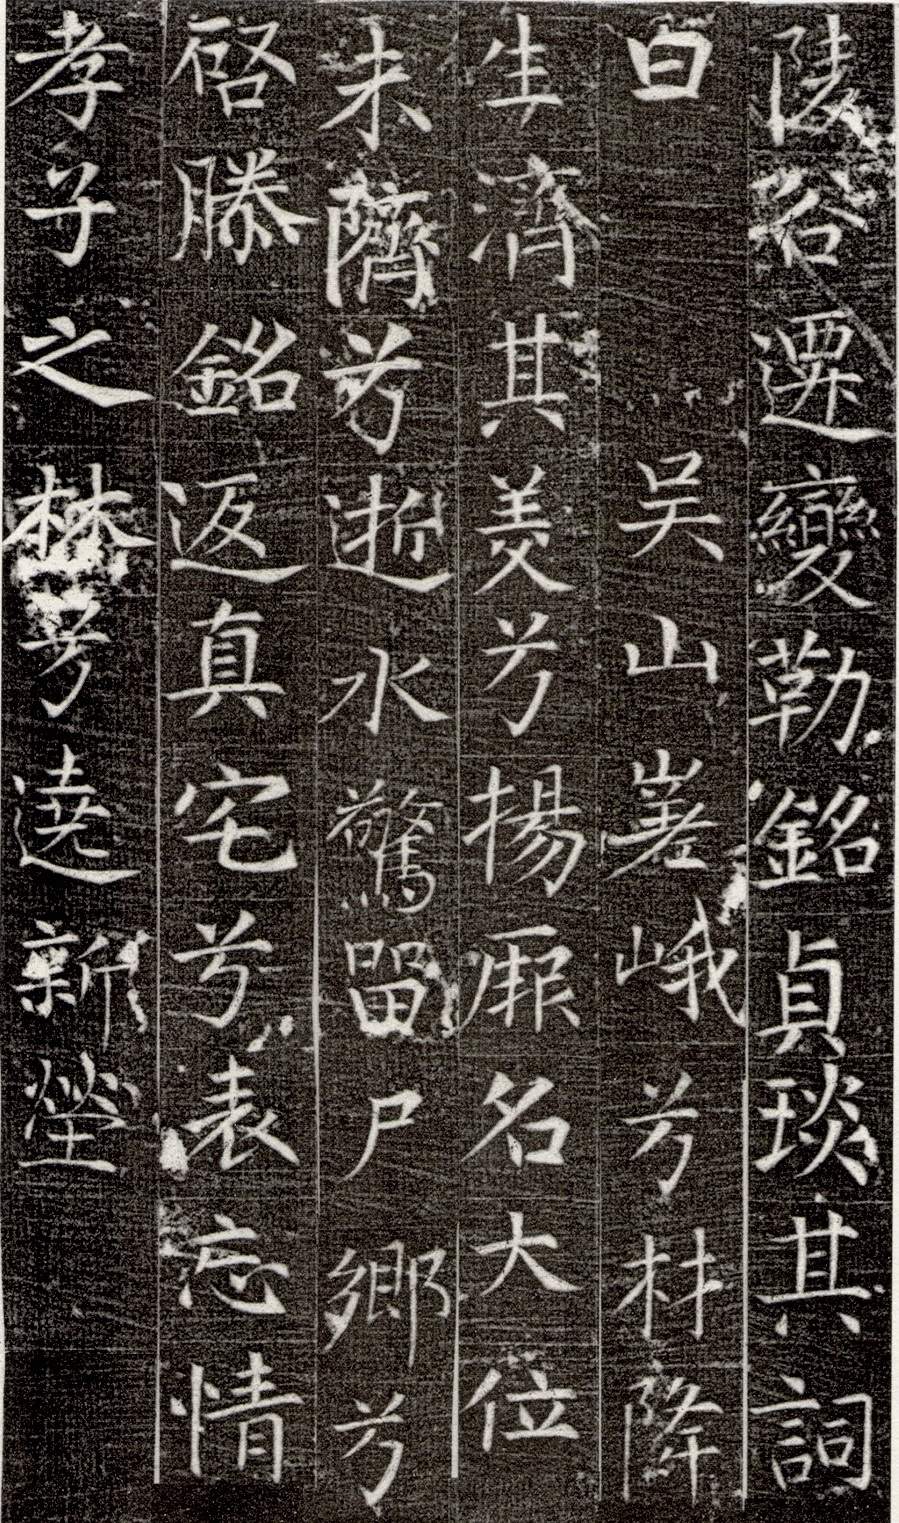 陵谷遷變勒銘貞琰其詞
曰　吴山嵳峨兮材降
生濟其美兮揚厥名大位
未隮兮逝水驚留尸鄉兮
啓滕銘返真宅兮表忘情
孝子之林兮遶新塋